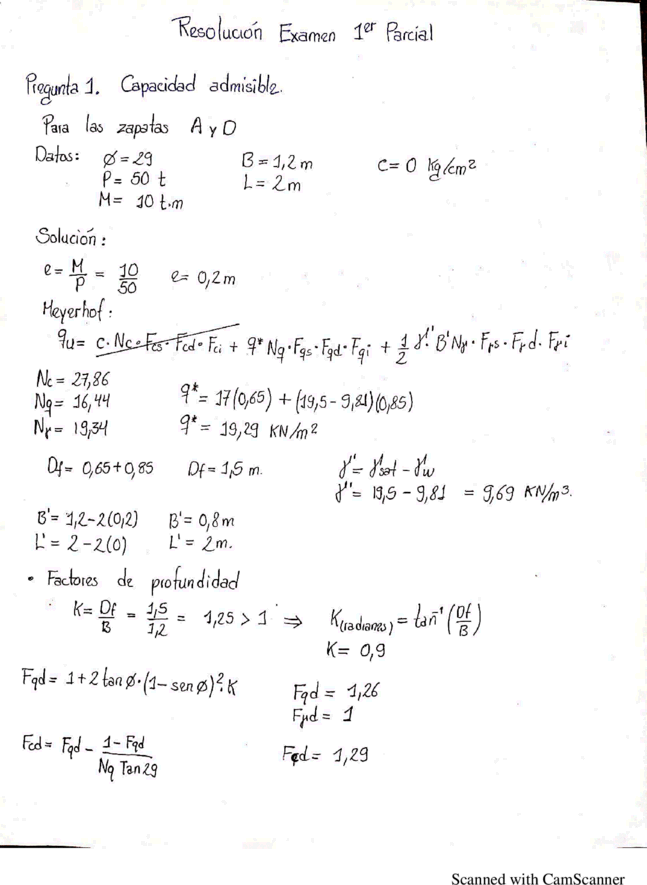 Resolución Examen 1er Parcial
Pregunta 1. Capacidad admisible.
Para las zapatas A y D
Datos: Ø = 29 B = 1,2 m C = 0 kg/cm²
P = 50 t L = 2 m
M = 10 t.m
Solución:
e = M/P = 10/50 e = 0,2 m
Meyerhof:
qu = c·Nc·Fcs·Fcd·Fci + q* Nq·Fqs·Fqd·Fqi + 1/2 γ' B' Nγ·Fγs·Fγd·Fγi
Nc = 27,86
Nq = 16,44 q* = 17(0,65) + (19,5 - 9,81)(0,85)
Nγ = 19,34 q* = 19,29 KN/m²
Df = 0,65 + 0,85 Df = 1,5 m. γ' = γsat - γw
γ' = 19,5 - 9,81 = 9,69 KN/m³.
B' = 1,2 - 2(0,2) B' = 0,8 m
L' = 2 - 2(0) L' = 2 m.
• Factores de profundidad
K = Df/B = 1,5/1,2 = 1,25 > 1 ⇒ K(radianes) = tan⁻¹(Df/B)
K = 0,9
Fqd = 1 + 2 tan Ø·(1 - sen Ø)²·K Fqd = 1,26
Fγd = 1
Fcd = Fqd - (1 - Fqd)/(Nq Tan 29) Fcd = 1,29
Scanned with CamScanner